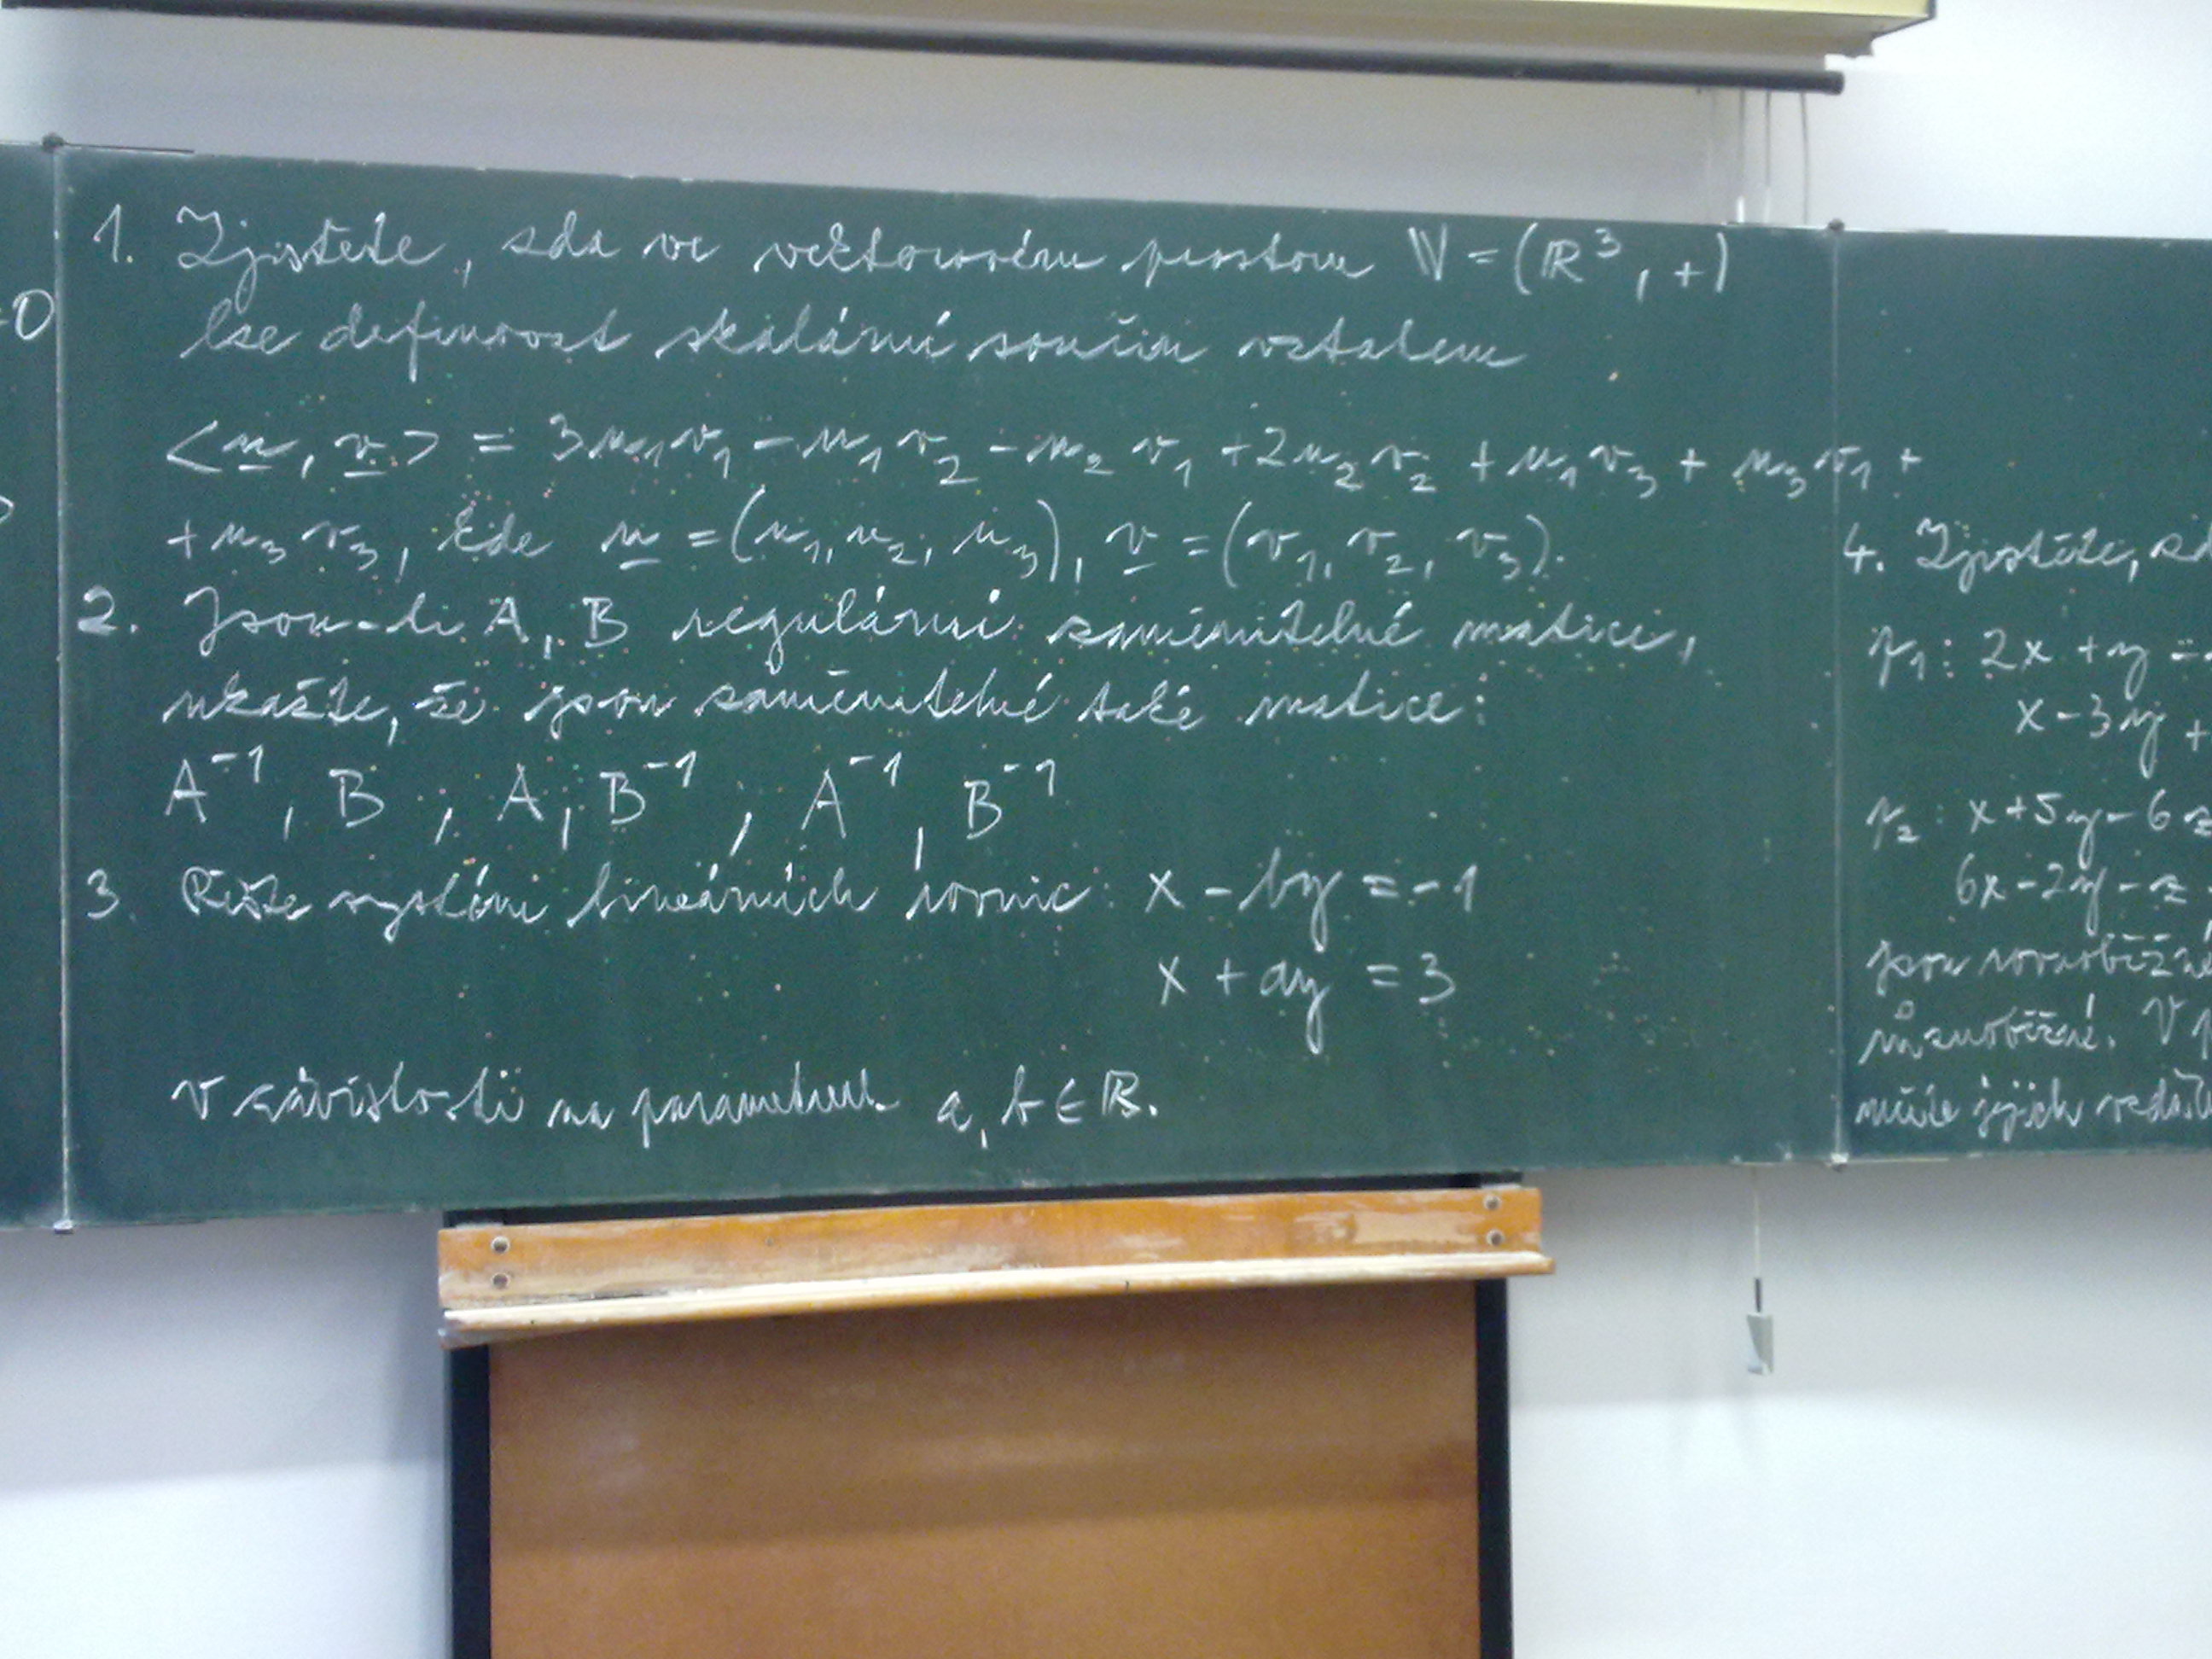 1. Zjistěte, zda ve vektorovém prostoru V = (ℝ³, +)
lze definovat skalární součin vztahem
<u, v> = 3u₁v₁ - u₁v₂ - u₂v₁ + 2u₂v₂ + u₁v₃ + u₃v₁ +
+ u₃v₃, kde u = (u₁, u₂, u₃), v = (v₁, v₂, v₃).
2. Jsou-li A, B regulární zaměnitelné matice,
ukažte, že jsou zaměnitelné také matice:
A⁻¹, B , A, B⁻¹ , A⁻¹, B⁻¹
3. Řešte systém lineárních rovnic: x - by = -1
x + ay = 3
v závislosti na parametrech a, b ∈ ℝ.
=0
4. Zjistěte, zd
p₁: 2x + y =
x - 3y +
p₂: x + 5y - 6z
6x - 2y - z
jsou rovnoběžné
mimoběžné. V p
může jejich vzdále